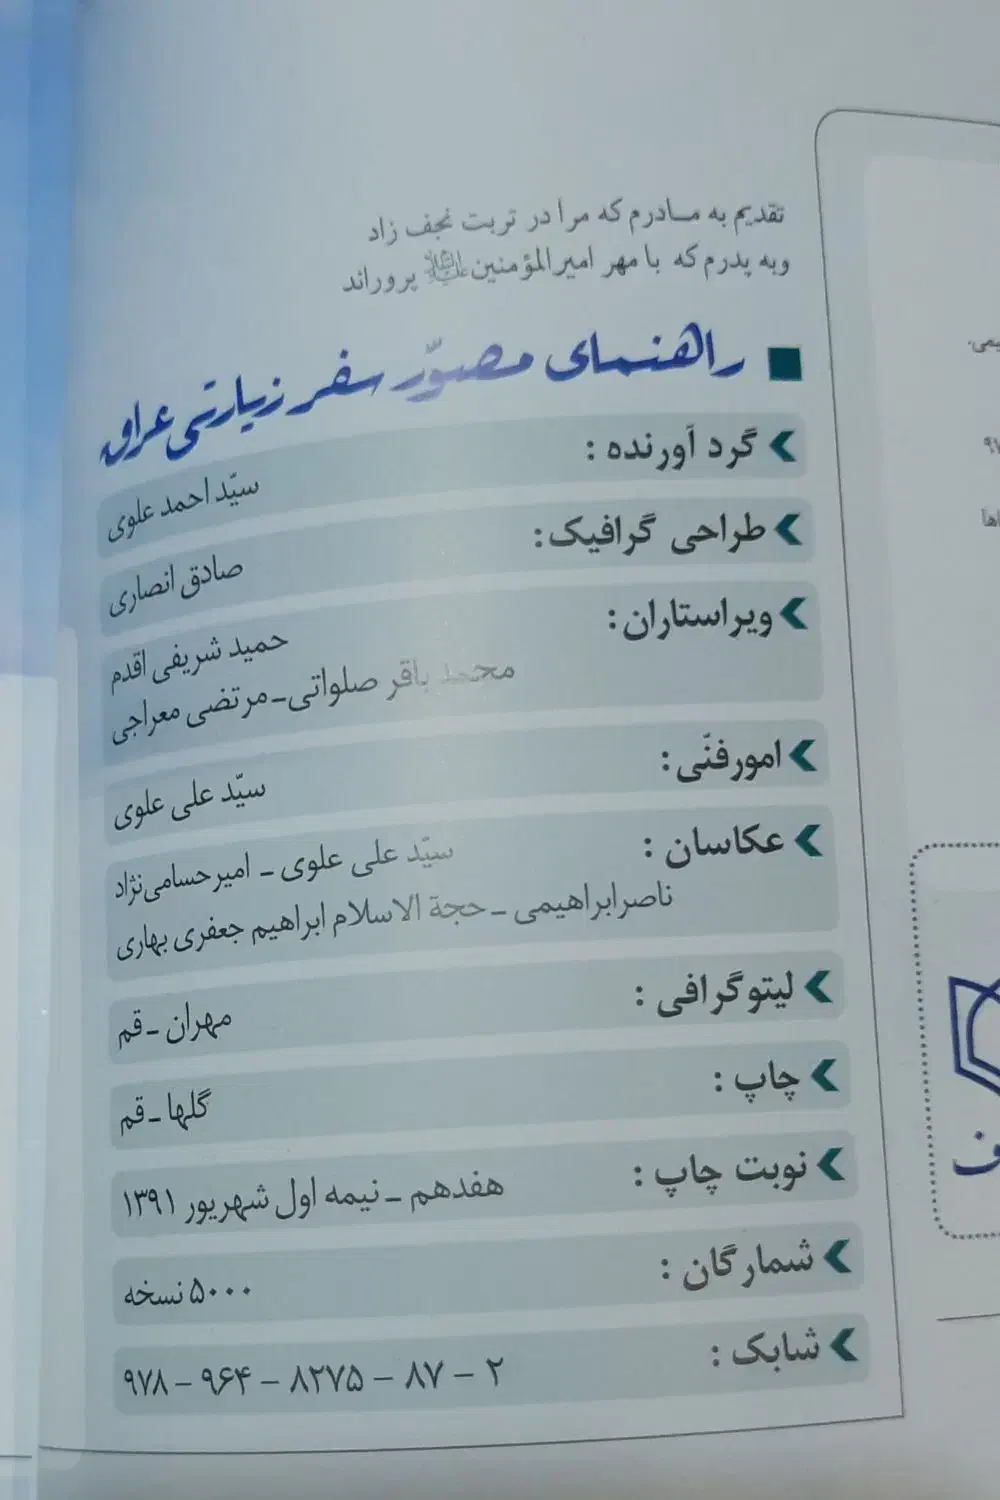 تقدیم به مادرم که مرا در تربت نجف زاد
وبه پدرم که با مهر امیرالمؤمنین علیه‌السلام پروراند
راهنمای مصوّر سفر زیارتی عراق
گرد آورنده :
سیّد احمد علوی
طراحی گرافیک:
صادق انصاری
ویراستاران:
حمید شریفی اقدم
محمد باقر صلواتی - مرتضی معراجی
امورفنّی:
سیّد علی علوی
عکاسان :
سیّد علی علوی - امیرحسامی‌نژاد
ناصرابراهیمی - حجة الاسلام ابراهیم جعفری بهاری
لیتوگرافی :
مهران - قم
چاپ :
گلها - قم
نوبت چاپ :
هفدهم - نیمه اول شهریور ۱۳۹۱
شمارگان :
۵۰۰۰ نسخه
شابک :
۹۷۸ – ۹۶۴ – ۸۲۷۵ – ۸۷ – ۲